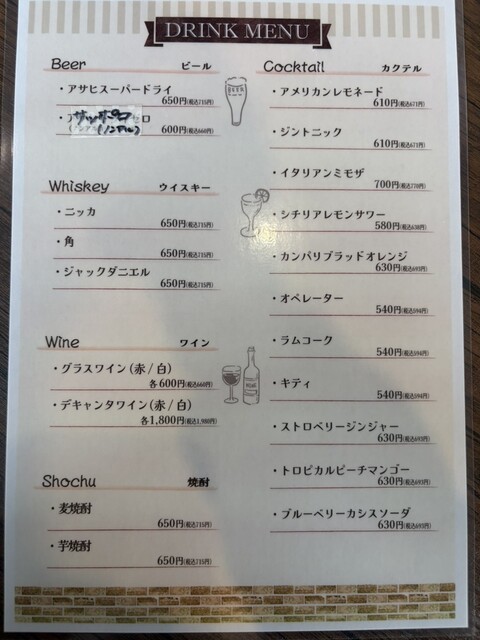 DRINK MENU
Beer ビール
・アサヒスーパードライ
650円(税込715円)
サッポロ
(ノンアル)
600円(税込660円)
Whiskey ウイスキー
・ニッカ
650円(税込715円)
・角
650円(税込715円)
・ジャックダニエル
650円(税込715円)
Wine ワイン
・グラスワイン(赤/白)
各600円(税込660円)
・デキャンタワイン(赤/白)
各1,800円(税込1,980円)
Shochu 焼酎
・麦焼酎
650円(税込715円)
・芋焼酎
650円(税込715円)
Cocktail カクテル
・アメリカンレモネード
610円(税込671円)
・ジントニック
610円(税込671円)
・イタリアンミモザ
700円(税込770円)
・シチリアレモンサワー
580円(税込638円)
・カンパリブラッドオレンジ
630円(税込693円)
・オペレーター
540円(税込594円)
・ラムコーク
540円(税込594円)
・キティ
540円(税込594円)
・ストロベリージンジャー
630円(税込693円)
・トロピカルピーチマンゴー
630円(税込693円)
・ブルーベリーカシスソーダ
630円(税込693円)
BEER